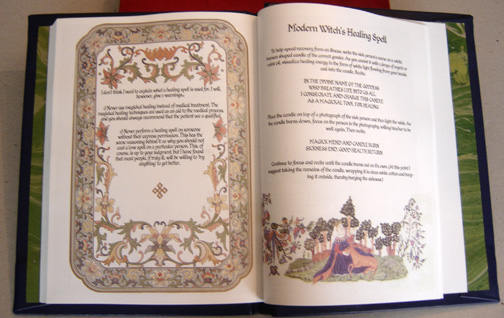 I don't think I need to explain what a healing spell is used for. I will,
however, give 2 warnings:
Never use magickal healing instead of medical treatment. The
magickal techniques are used as an aid to the medical process,
and you should always recommend that the patient see a qualified
Never perform a healing spell on someone
without their express permission. This has the
same reasoning behind it as why you should not
cast a love spell on a particular person. This, of
course, is up to your judgment, but I have found
that most people, if truly ill, will be willing to try
anything to get better.
Modern Witch's Healing Spell
To help speed recovery from an illness, write the sick person's name on a white
human shaped candle of the correct gender. As you anoint it with 3 drops of myrrh or
mint oil, visualize healing energy in the form of white light flowing from your hands
and into the candle. Recite:
IN THE DIVINE NAME OF THE GODDESS
WHO BREATHES LIFE INTO US ALL
I CONSECRATE AND CHARGE THIS CANDLE
AS A MAGICKAL TOOL FOR HEALING
Place the candle on top of a photograph of the sick person and then light the wick. As
the candle burns down, focus on the person in the photography, willing him/her to be
well again. Then recite,
MAGICK MEND AND CANDLE BURN
SICKNESS END; GOOD HEALTH RETURN
Continue to focus and recite until the candle burns out on its own. (At this point I
suggest taking the remains of the candle, wrapping it in clean white cotton and
it outside, thereby burying the sickness.)